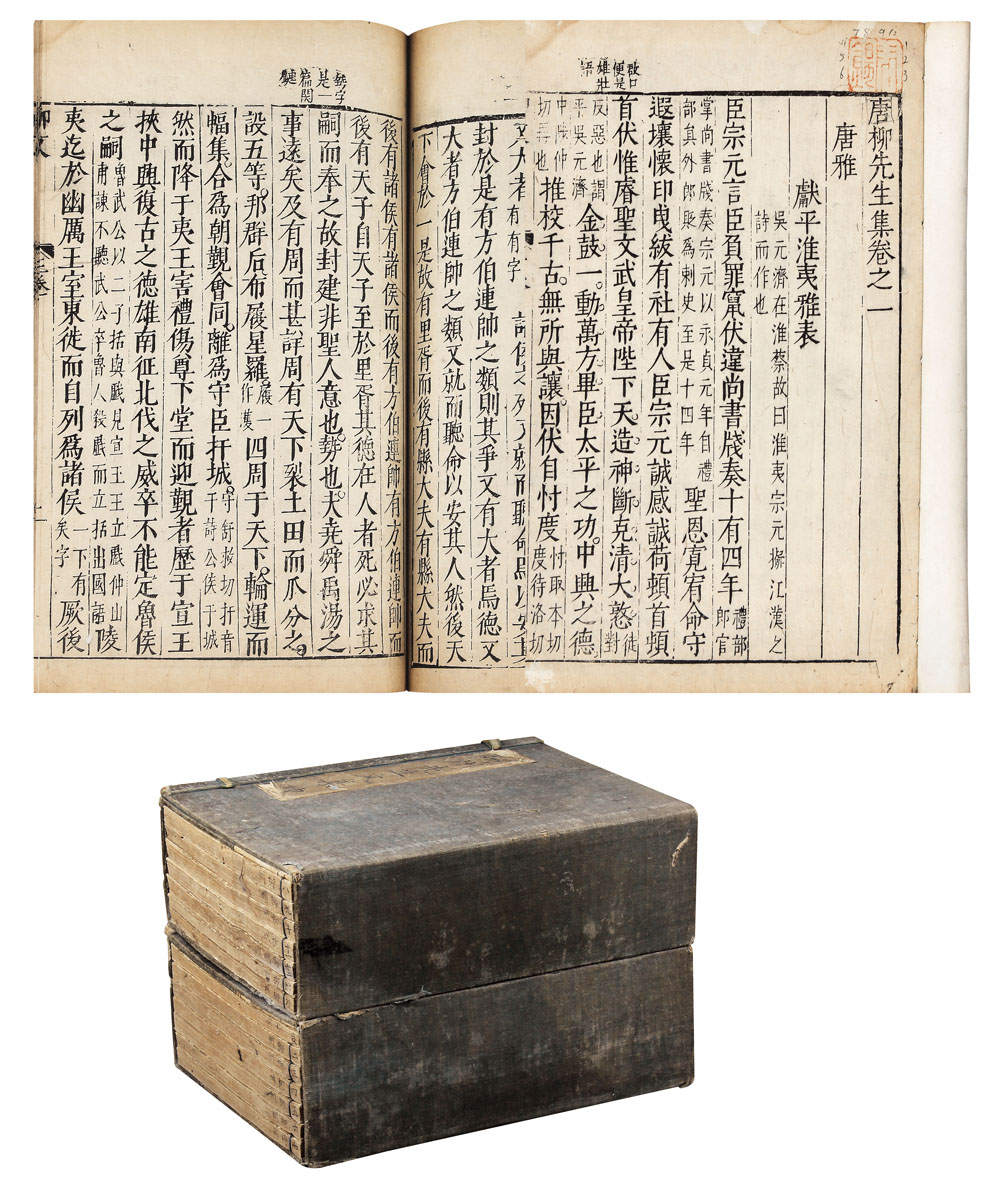 唐柳先生集卷之一
唐雅
獻平淮夷雅表
吳元濟在淮蔡故曰淮夷宗元擬江漢之
詩而作也
臣宗元言臣負罪竄伏違尚書牋奏十有四年
禮部
郎官
掌尚書牋奏宗元以永貞元年自禮
部員外郎貶爲刺史至是十四年
聖恩寬宥命守
遐壤懷印曳紱有社有人臣宗元誠感誠荷頓首頓
啟口
便是
雄壯
語
首伏惟睿聖文武皇帝陛下天造神斷克清大憝
徒
對
反惡也謂
平吳元濟
金鼓一動萬方畢臣太平之功中興之德
中陟仲
切再也
推校千古無所與讓因伏自忖度
忖取本切
度待洛切
又大者
有有字
封於是有方伯連帥之類則其爭又有大者焉德又
大者方伯連帥之類又就而聽命以安其人然後天
下會於一是故有里胥而後有縣大夫有縣大夫而
後有諸侯有諸侯而後有方伯連帥有方伯連帥而
後有天子自天子至於里胥其德在人者死必求其
勢字
是一
篇関
鍵
嗣而奉之故封建非聖人意也勢也夫堯舜禹湯之
事遠矣及有周而甚詳周有天下裂土田而瓜分之
設五等邦群后布履星羅
履一
作濩
四周于天下輪運而
幅集合爲朝覲會同離爲守臣扞城
守舒救切扞音
干詩公侯干城
然而降于夷王害禮傷尊下堂而迎覲者歷于宣王
挾中興復古之德雄南征北伐之威卒不能定魯侯
之嗣
魯武公以二子括與戲見宣王王立戲仲山
甫諫不聽武公卒魯人殺戲而立括出國語
陵
夷迄於幽厲王室東徙而自列爲諸侯
一下有
矣字
厥後
柳文